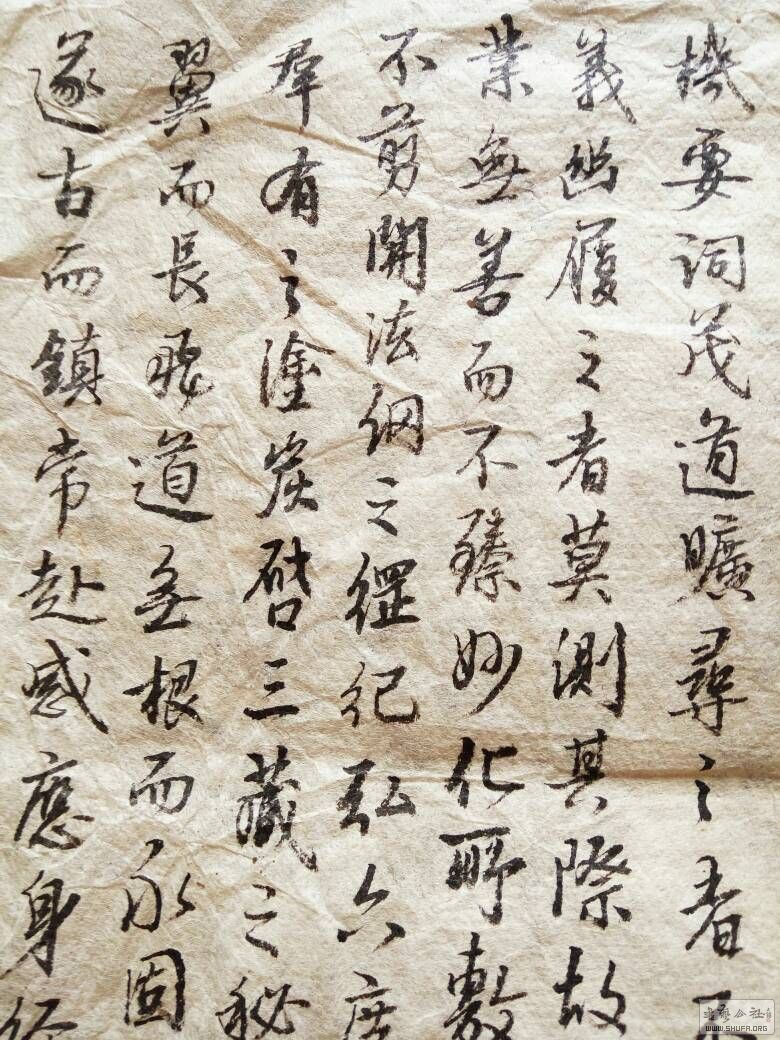 機要詞茂道曠尋之者不
義幽履之者莫測其際故
業無善而不臻妙化所敷
不剪開法網之綱紀弘六度
羣有之塗炭啓三藏之秘
翼而長飛道無根而永固
遂古而鎮常赴感應身經
書藝公社
WWW.SHUFA.ORG